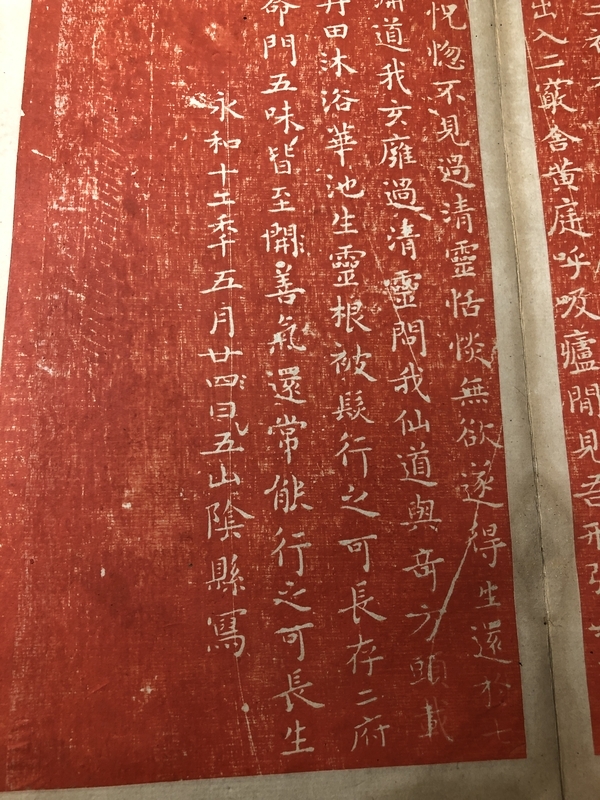 出入二竅舍黄庭呼吸廬間見吾形强
怳惚不見過清靈恬惔無欲遂得生還於
道我玄廱過清靈問我仙道與奇方頭載
丹田沐浴華池生靈根被髮行之可長存二府
命門五味皆至開善氣還常能行之可長生
永和十二秊五月廿四日五山陰縣寫